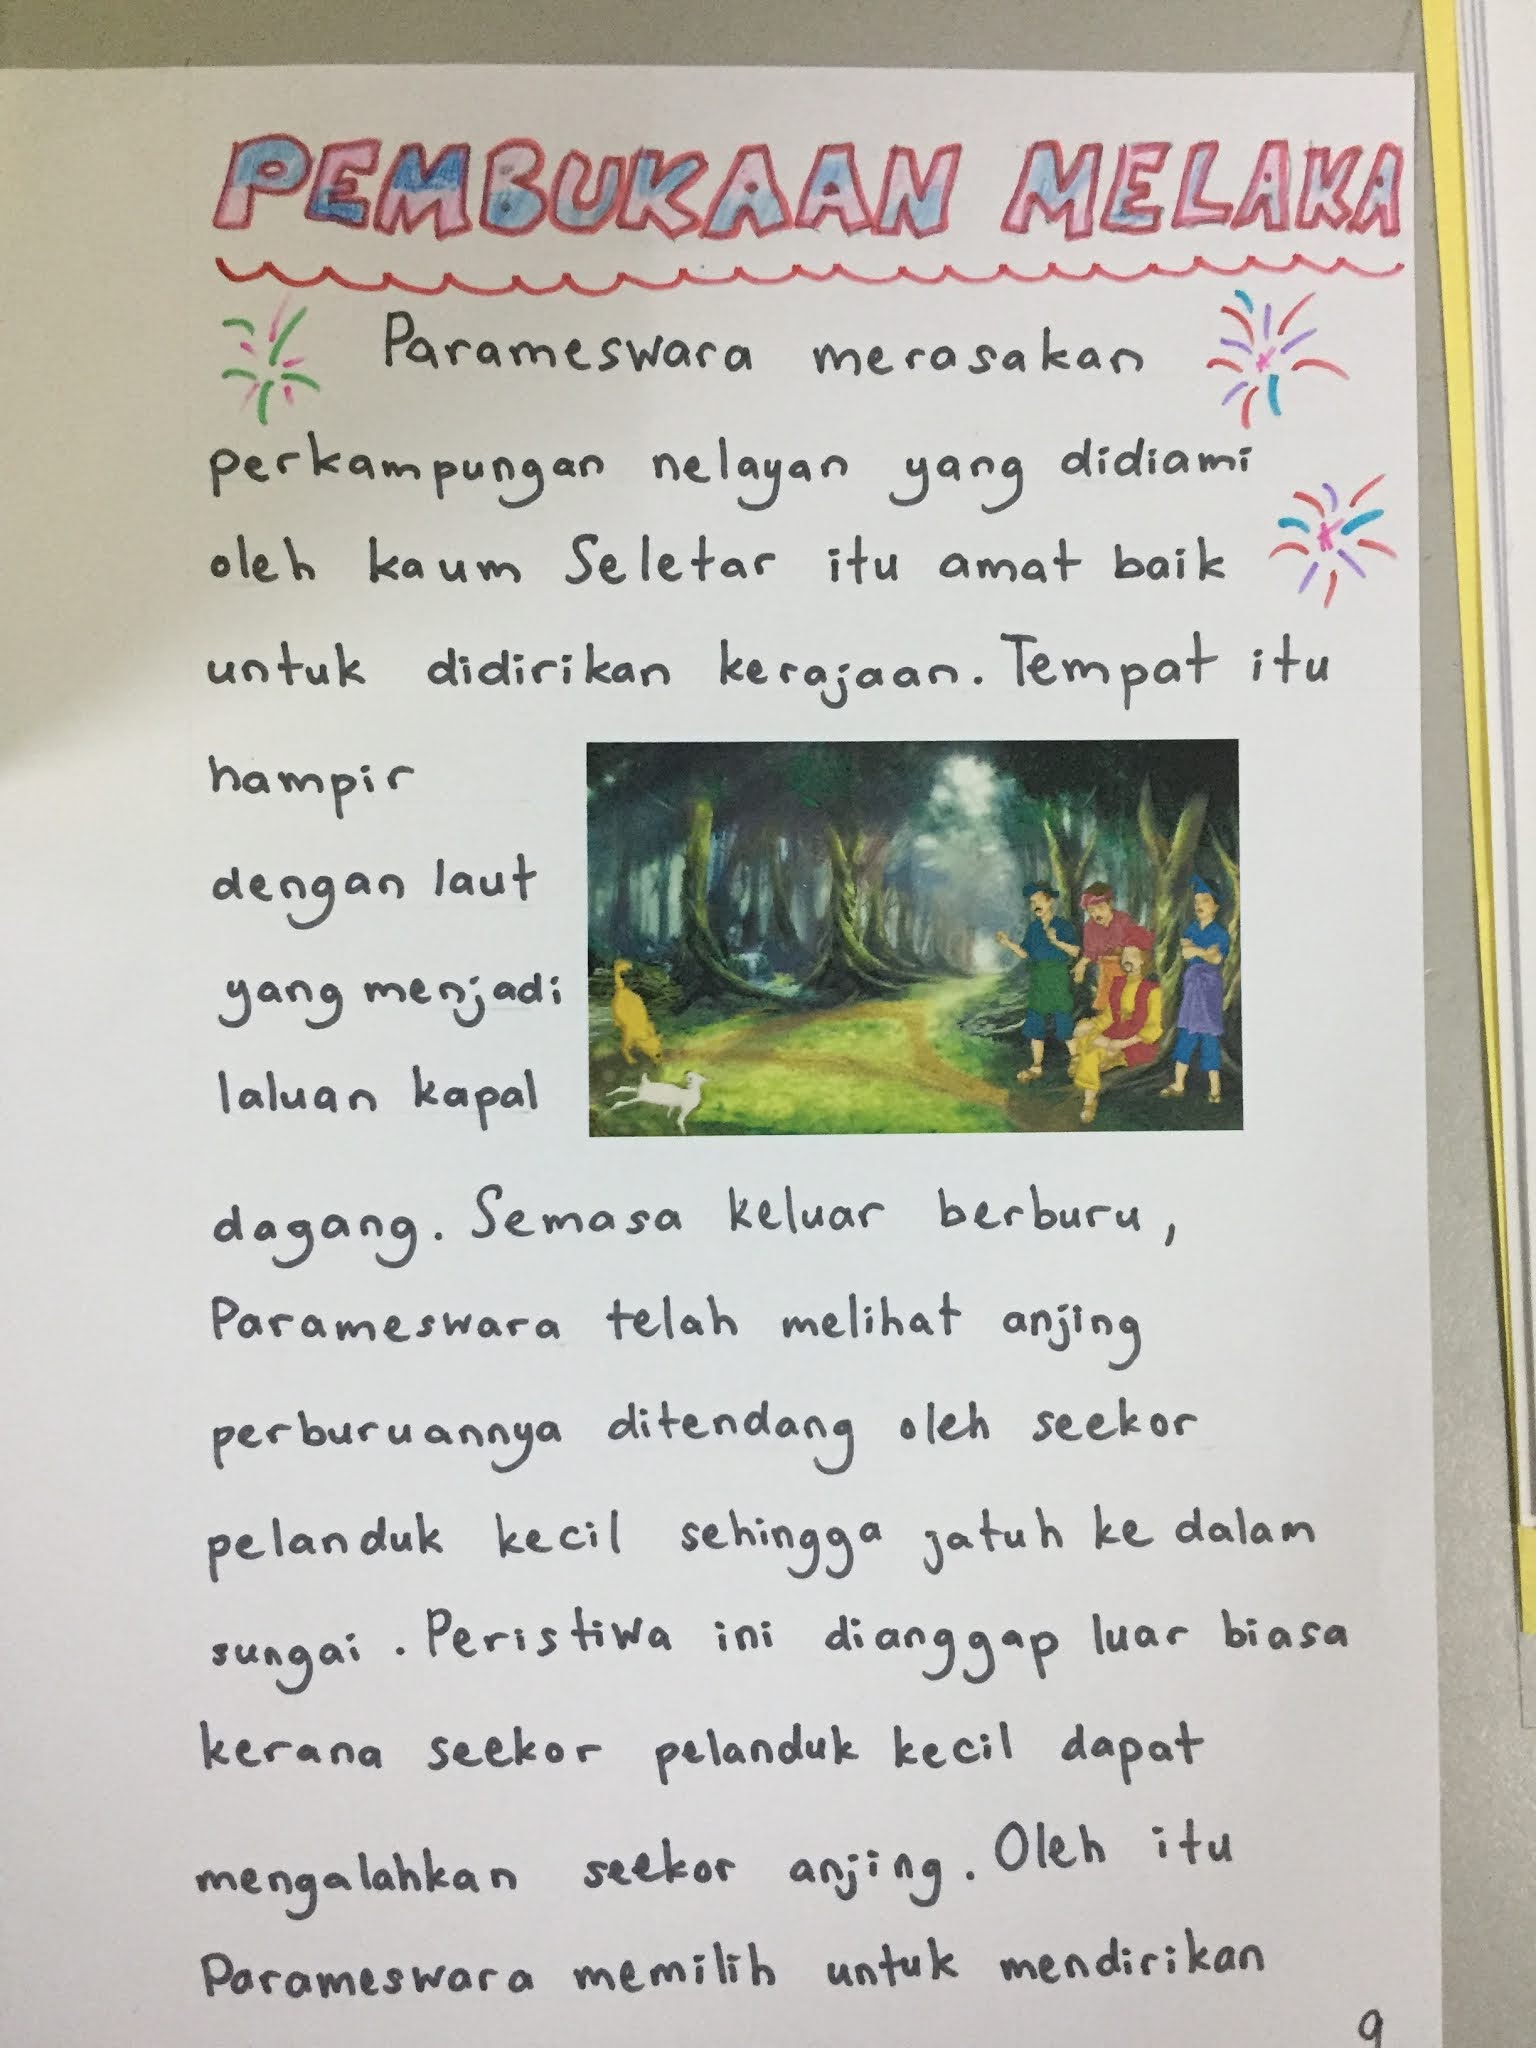 PEMBUKAAN MELAKA
Parameswara merasakan
perkampungan nelayan yang didiami
oleh kaum Seletar itu amat baik
untuk didirikan kerajaan. Tempat itu
hampir
dengan laut
yang menjadi
laluan kapal
dagang. Semasa keluar berburu,
Parameswara telah melihat anjing
perburuannya ditendang oleh seekor
pelanduk kecil sehingga jatuh ke dalam
sungai. Peristiwa ini dianggap luar biasa
kerana seekor pelanduk kecil dapat
mengalahkan seekor anjing. Oleh itu
Parameswara memilih untuk mendirikan
9